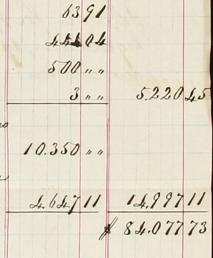 63 91
500 " "
3 " " 5.220 45
10.350 " "
4.647 11 14.997 11
$ 84.077 73